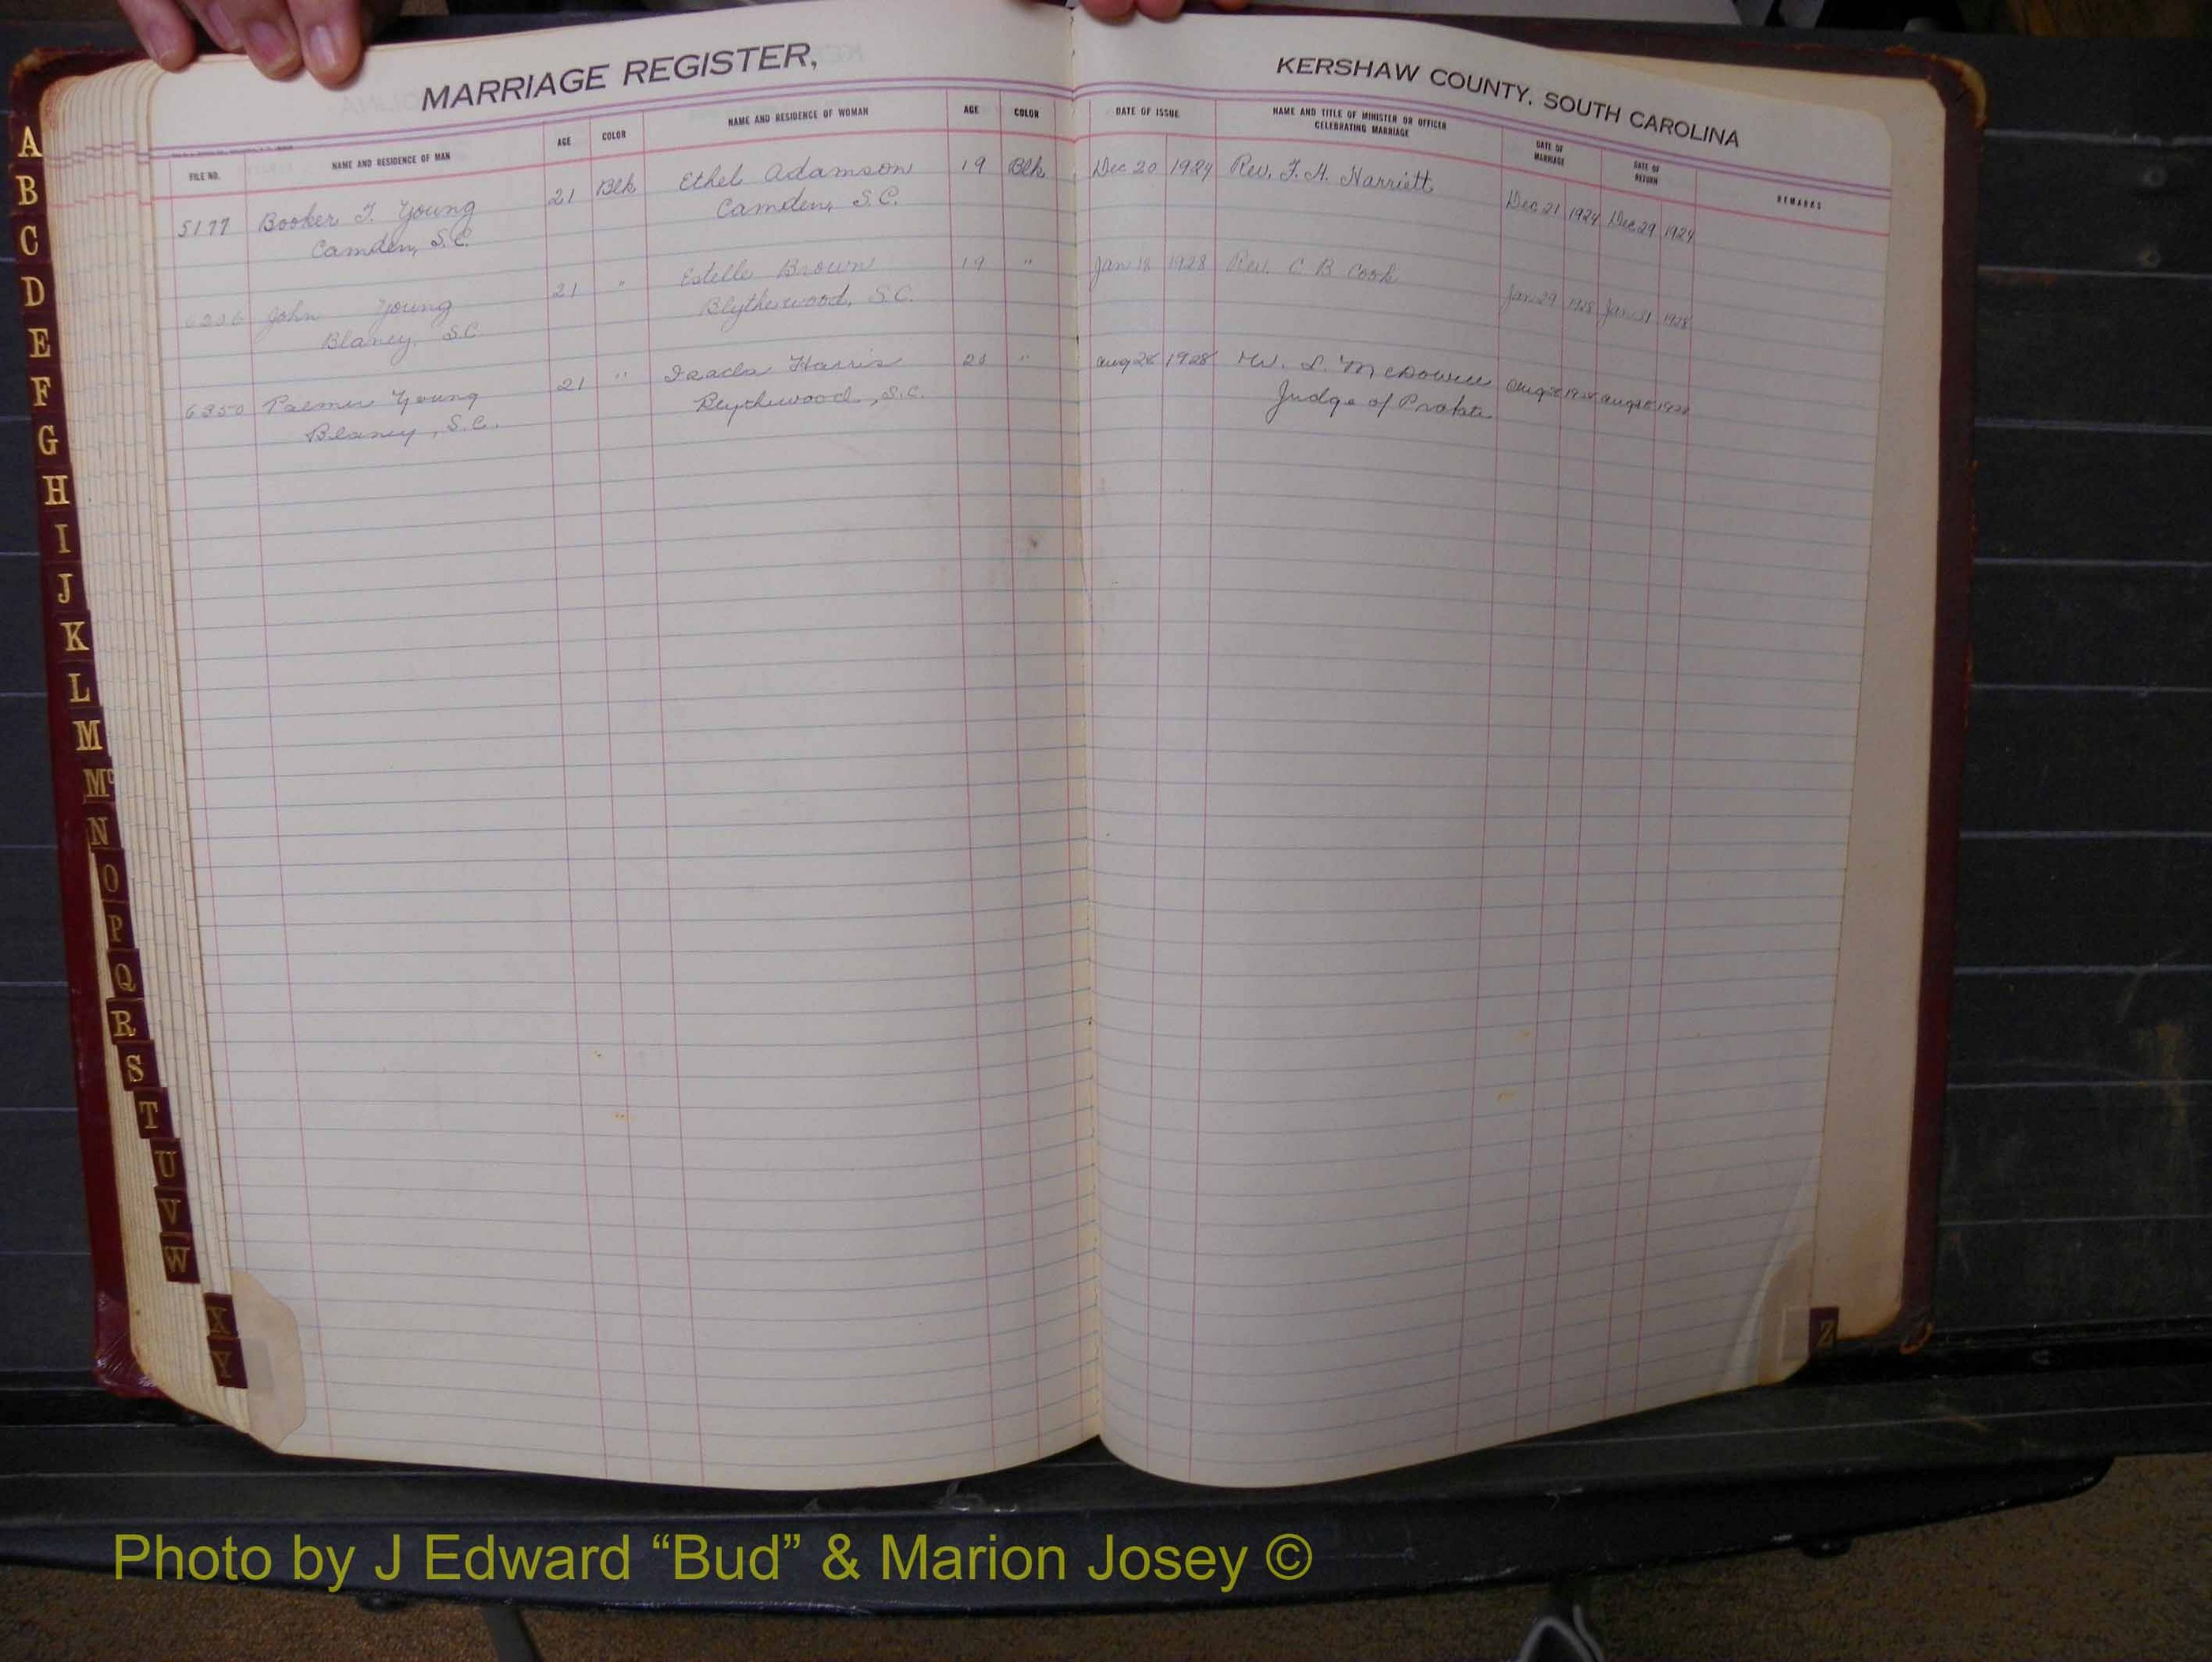 MARRIAGE REGISTER,
KERSHAW COUNTY, SOUTH CAROLINA
FILE NO. NAME AND RESIDENCE OF MAN AGE COLOR NAME AND RESIDENCE OF WOMAN AGE COLOR DATE OF ISSUE NAME AND TITLE OF MINISTER OR OFFICER CELEBRATING MARRIAGE DATE OF MARRIAGE DATE OF RETURN REMARKS
5177 Booker T. Young 21 Blk Ethel Adamson 19 Blk Dec 20 1924 Rev. F. H. Harriett Dec 21 1924 Dec 29 1924
Camden, S.C. Camden, S.C.
John Young 21 " Estelle Brown 19 " Jan 18 1928 Rev. C B Cook Jan 29 1928 Jan 31 1928
Blaney, S.C Blythewood, S.C.
6350 Palmer Young 21 " Harris " Aug 28 1928 W. L. McDowell Aug 28 1928 Aug 28 1928
Blaney, S.C. Blythewood, S.C. Judge of Probate
A
B
C
D
E
F
G
H
I
J
K
L
M
Mc
N
O
P
Q
R
S
T
U
V
W
X
Y
Z
Photo by J Edward “Bud” & Marion Josey ©